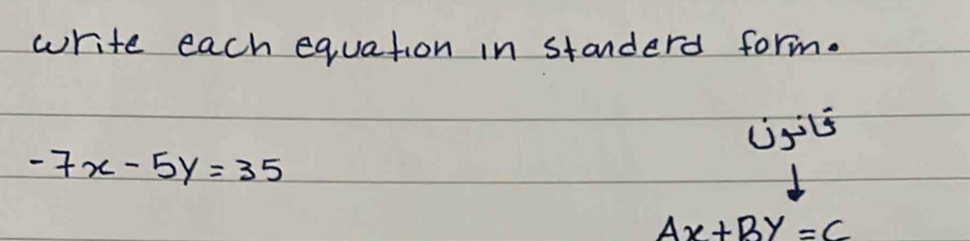 write each equation in standerd form.
قانون
↓
-7x - 5y = 35
Ax + By = C